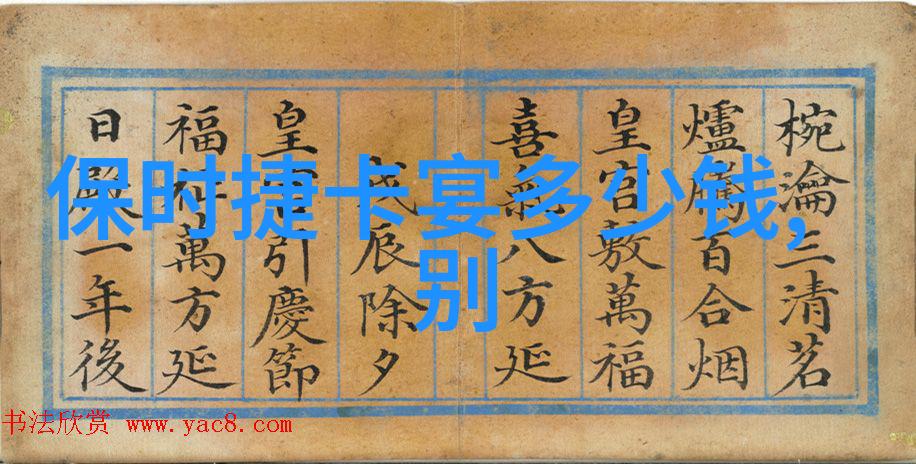 保时捷卡宴多少钱,
别
椀瀹三清茗
爐騰百合烟
皇宫敷萬福
喜氣八方延
戊辰除夕
皇宫引慶節
福祉萬方延
日殿一年後
书法欣赏 www.yac8.com